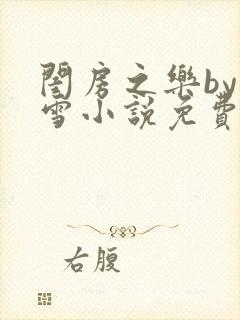 閨房之樂by
雪小說免費
右腹